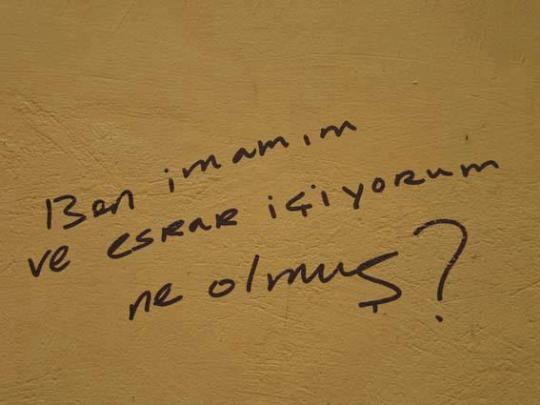 Ben imamım
ve esrar içiyorum
ne olmuş?